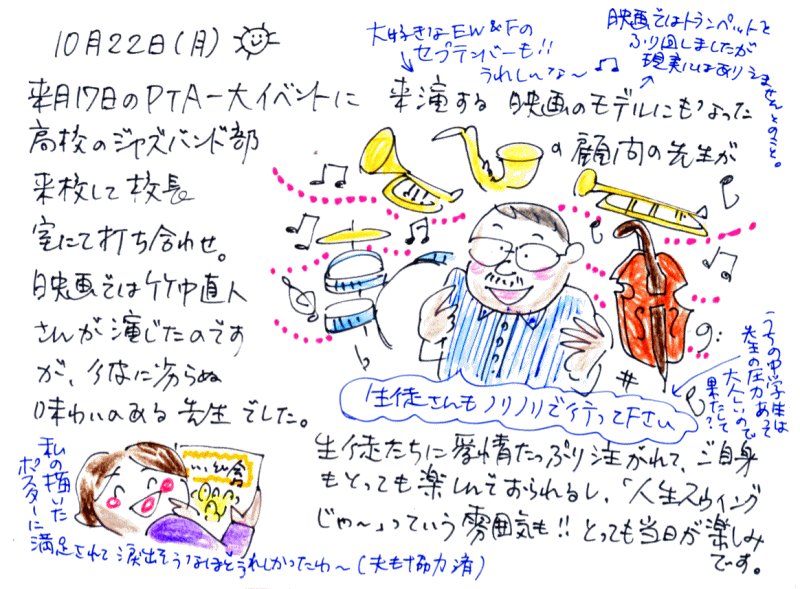 10月22日(月)
大好きなEW&Fの
セプテンバーも!!
うれし〜な〜♫
映画ではトランペットを
ふり回しましたが
現実にはありませんとのこと。
来月17日のPTA一大イベントに 来演する 映画のモデルにもなった
高校のジャズバンド部 の顧問の先生が
来校して校長
室にて打ち合わせ。
映画では竹中直人
さんが演じたのです
が、に劣らぬ
味わいのある先生でした。
生徒さんもノリノリで行って下さい
うちの中学生は
先生の圧力あって
大人しいので
果たして?
生徒たちに愛情たっぷり注がれて、ご自身
もとっても楽しんでおられるし、「人生スウィング
じゃ〜」っていう雰囲気も!! とっても当日が楽しみ
です。
私の描いた
ポスターに
満足されて涙出そうなほどうれしかったわ〜(夫も協力済)